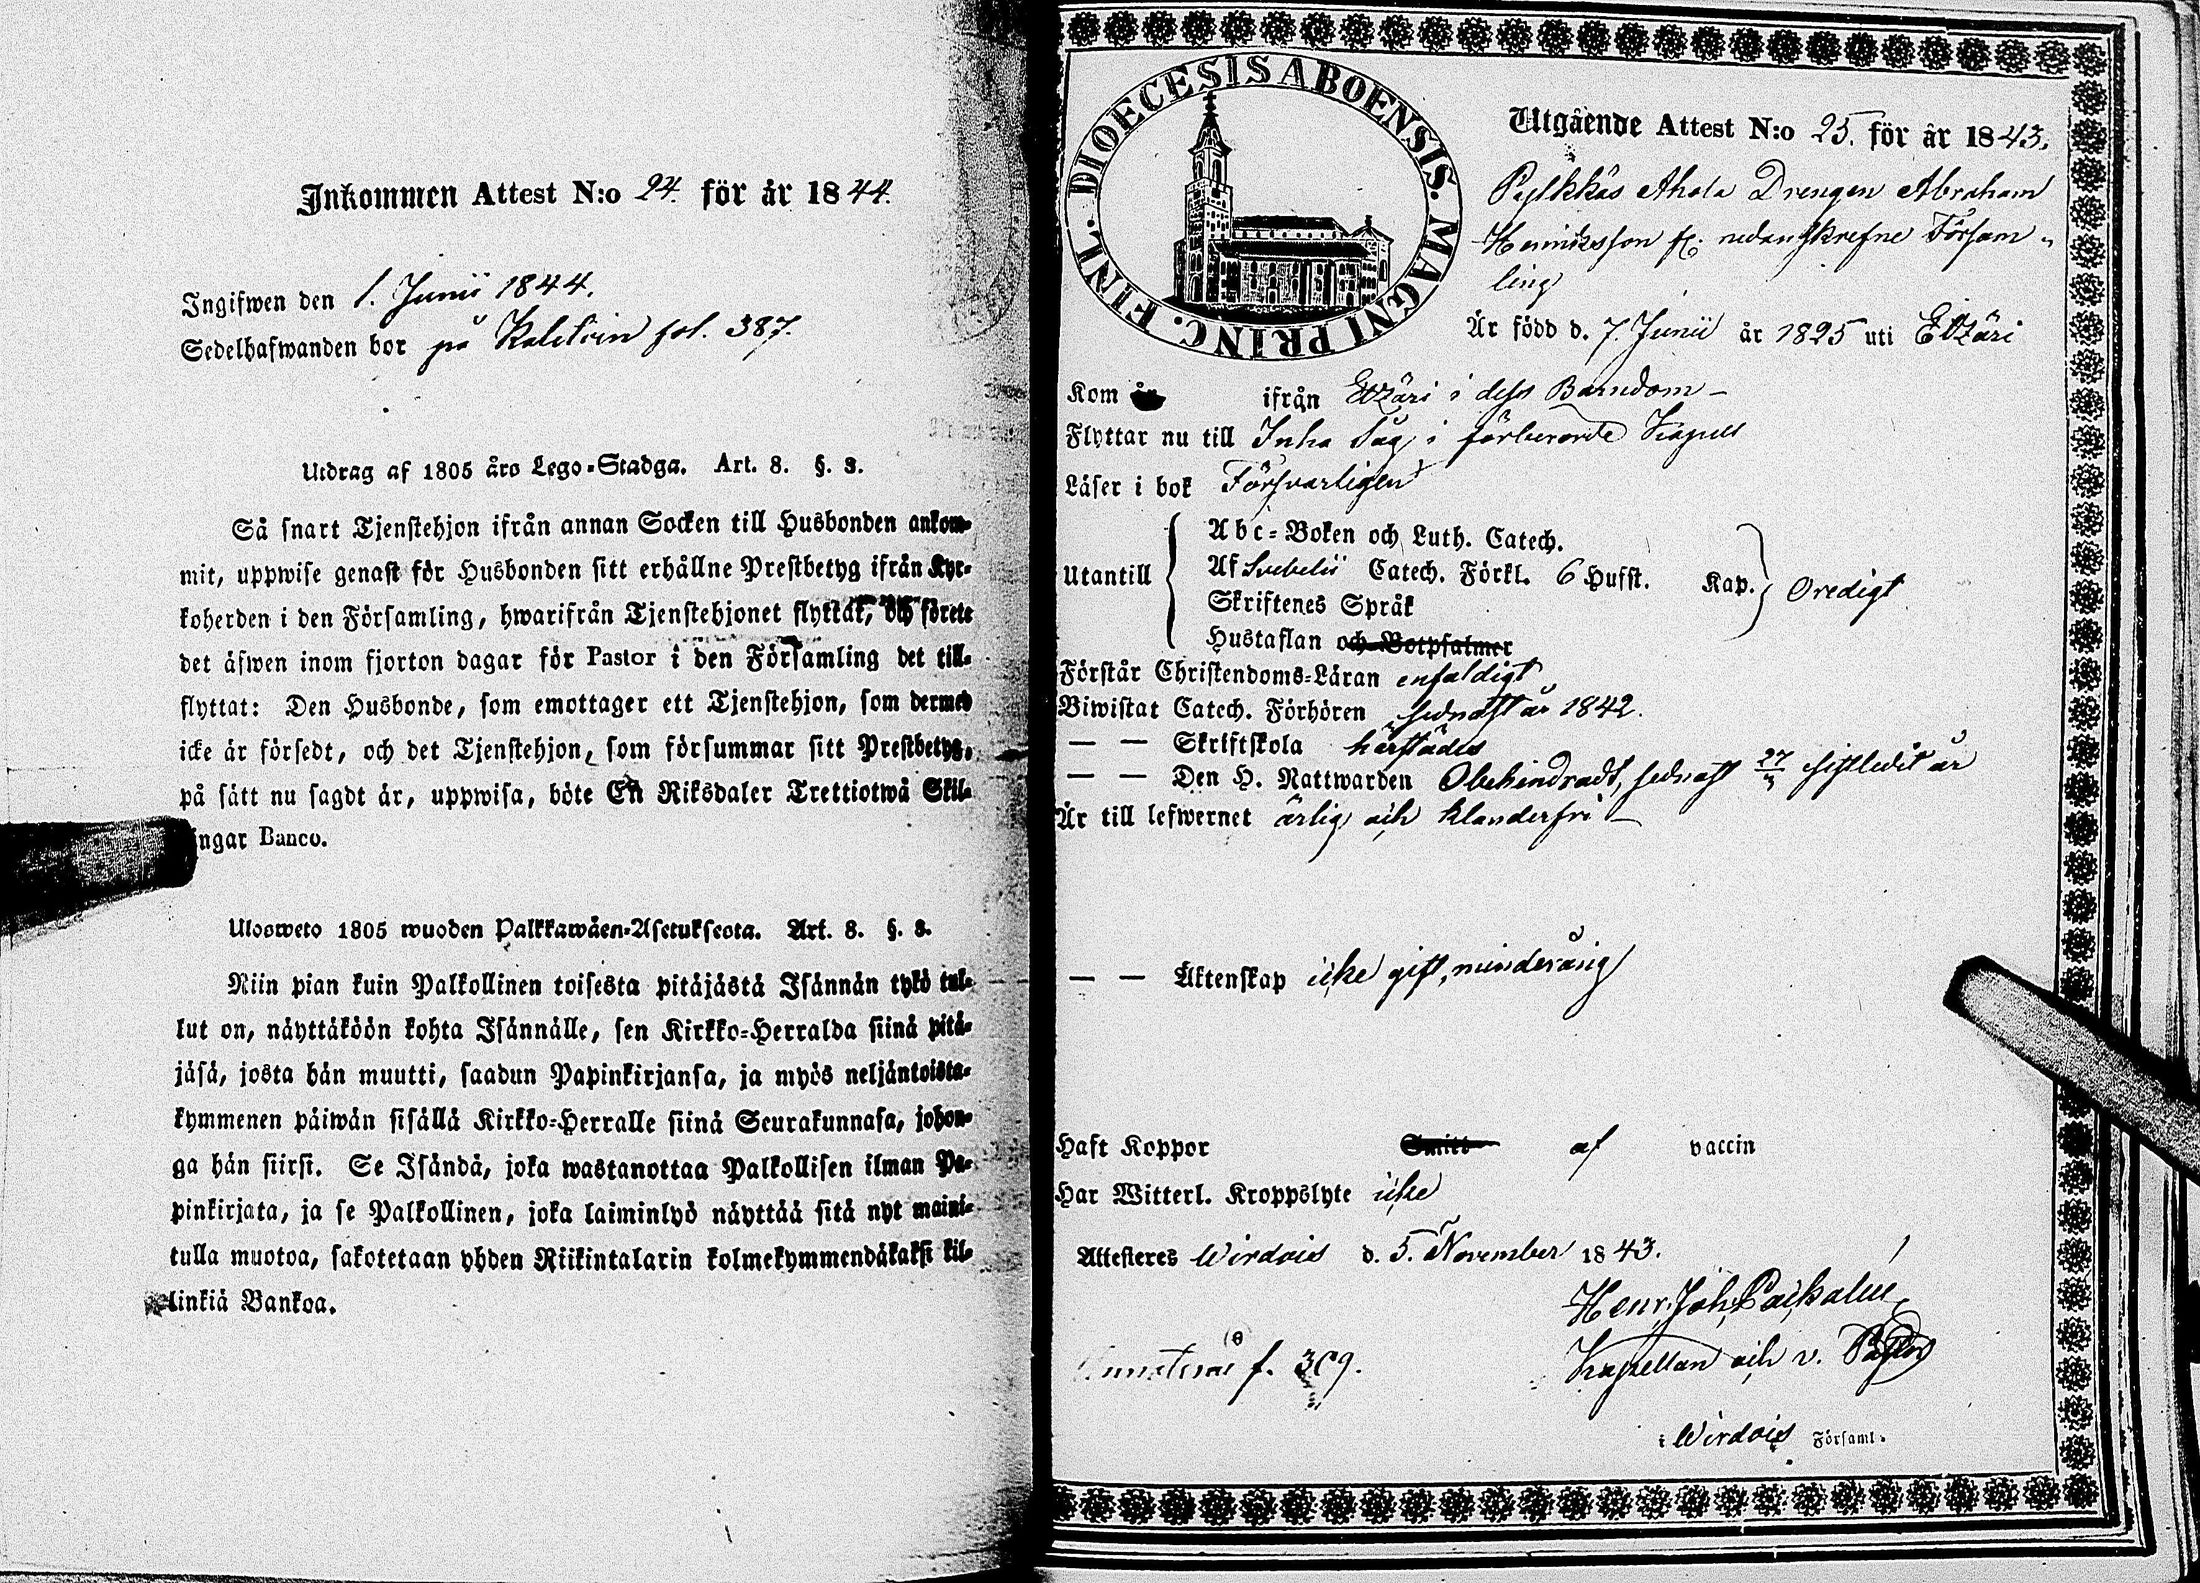 Inkommen Attest N:o 24. för år 1844.
Ingifwen den 1. Junii 1844.
Sedelhafwanden bor på fol. 387.
Utdrag af 1805 års Lego-Stadga. Art. 8. §. 3.
Så snart Tjenstehjon ifrån annan Socken till Husbonden ankom-
mit, uppwise genast för Husbonden sitt erhållne Prestbetyg ifrån Kyr-
koherden i den Församling, hwarifrån Tjenstehjonet flyttat, och förete
det äfwen inom fjorton dagar för Pastor i den Församling det till-
flyttat: Den Husbonde, som emottager ett Tjenstehjon, som dermed
icke är försedt, och det Tjenstehjon, som försummar sitt Prestbetyg,
på sätt nu sagdt är, uppwisa, böte En Riksdaler Trettiotwå Skil-
ingar Banco.
Ulosweto 1805 wuoden Palkkawäen-Asetuksesta. Art. 8. §. 3.
Niin pian kuin Palkollinen toisesta pitäjästä Isännän tykö tul-
lut on, näyttäköön kohta Isännälle, sen Kirkko-Herralda siinä pitä-
jäsä, josta hän muutti, saadun Papinkirjansa, ja myös neljäntoista-
kymmenen päiwän sisällä Kirkko-Herralle siinä Seurakunnasa, johon-
ga hän siirsi. Se Isändä, joka wastanottaa Palkollisen ilman Pa-
pinkirjata, ja se Palkollinen, joka laiminlyö näyttää sitä nyt maini-
tulla muotoa, sakotetaan yhden Riikintalarin kolmekymmendäkaksi kil-
linkiä Bankoa.
DIOECESIS ABOENSIS. MAGNI PRINC. FINL.
Utgående Attest N:o 25. för år 1843.
Pylkkäs Ahola Drengen Abraham
Henriksson fr. nedanskrefne Försam-
ling
Är född d. 7. Junii år 1825 uti Etzäri
Kom år ifrån Etzäri i dess Barndom –
Flyttar nu till Inha Såg i förberörde Kapell
Läser i bok Försvarligen
Utantill
Abc-Boken och Luth. Catech.
Af Svebelii Catech. Förkl. 6 Hufst. Kap. Oredigt
Skriftenes Språk
Hustaflan och Botpsalmer
Förstår Christendoms-Läran enfaldigt
Biwistat Catech. Förhören sednast år 1842.
— — Skriftskola härstädes
— — Den H. Nattwarden Obehindradt, sednast 27/3 sistledit år
Är till lefwernet ärlig och klanderfri –
— — Äktenskap icke gift, minderårig
Haft Koppor Smitt af vaccin
Har Witterl. Kroppslyte icke
Attesteres Wirdois d. 5. November 1843.
Henr. Joh.
f. 309. Kapellan och v. Pastor
i Wirdois Församl.